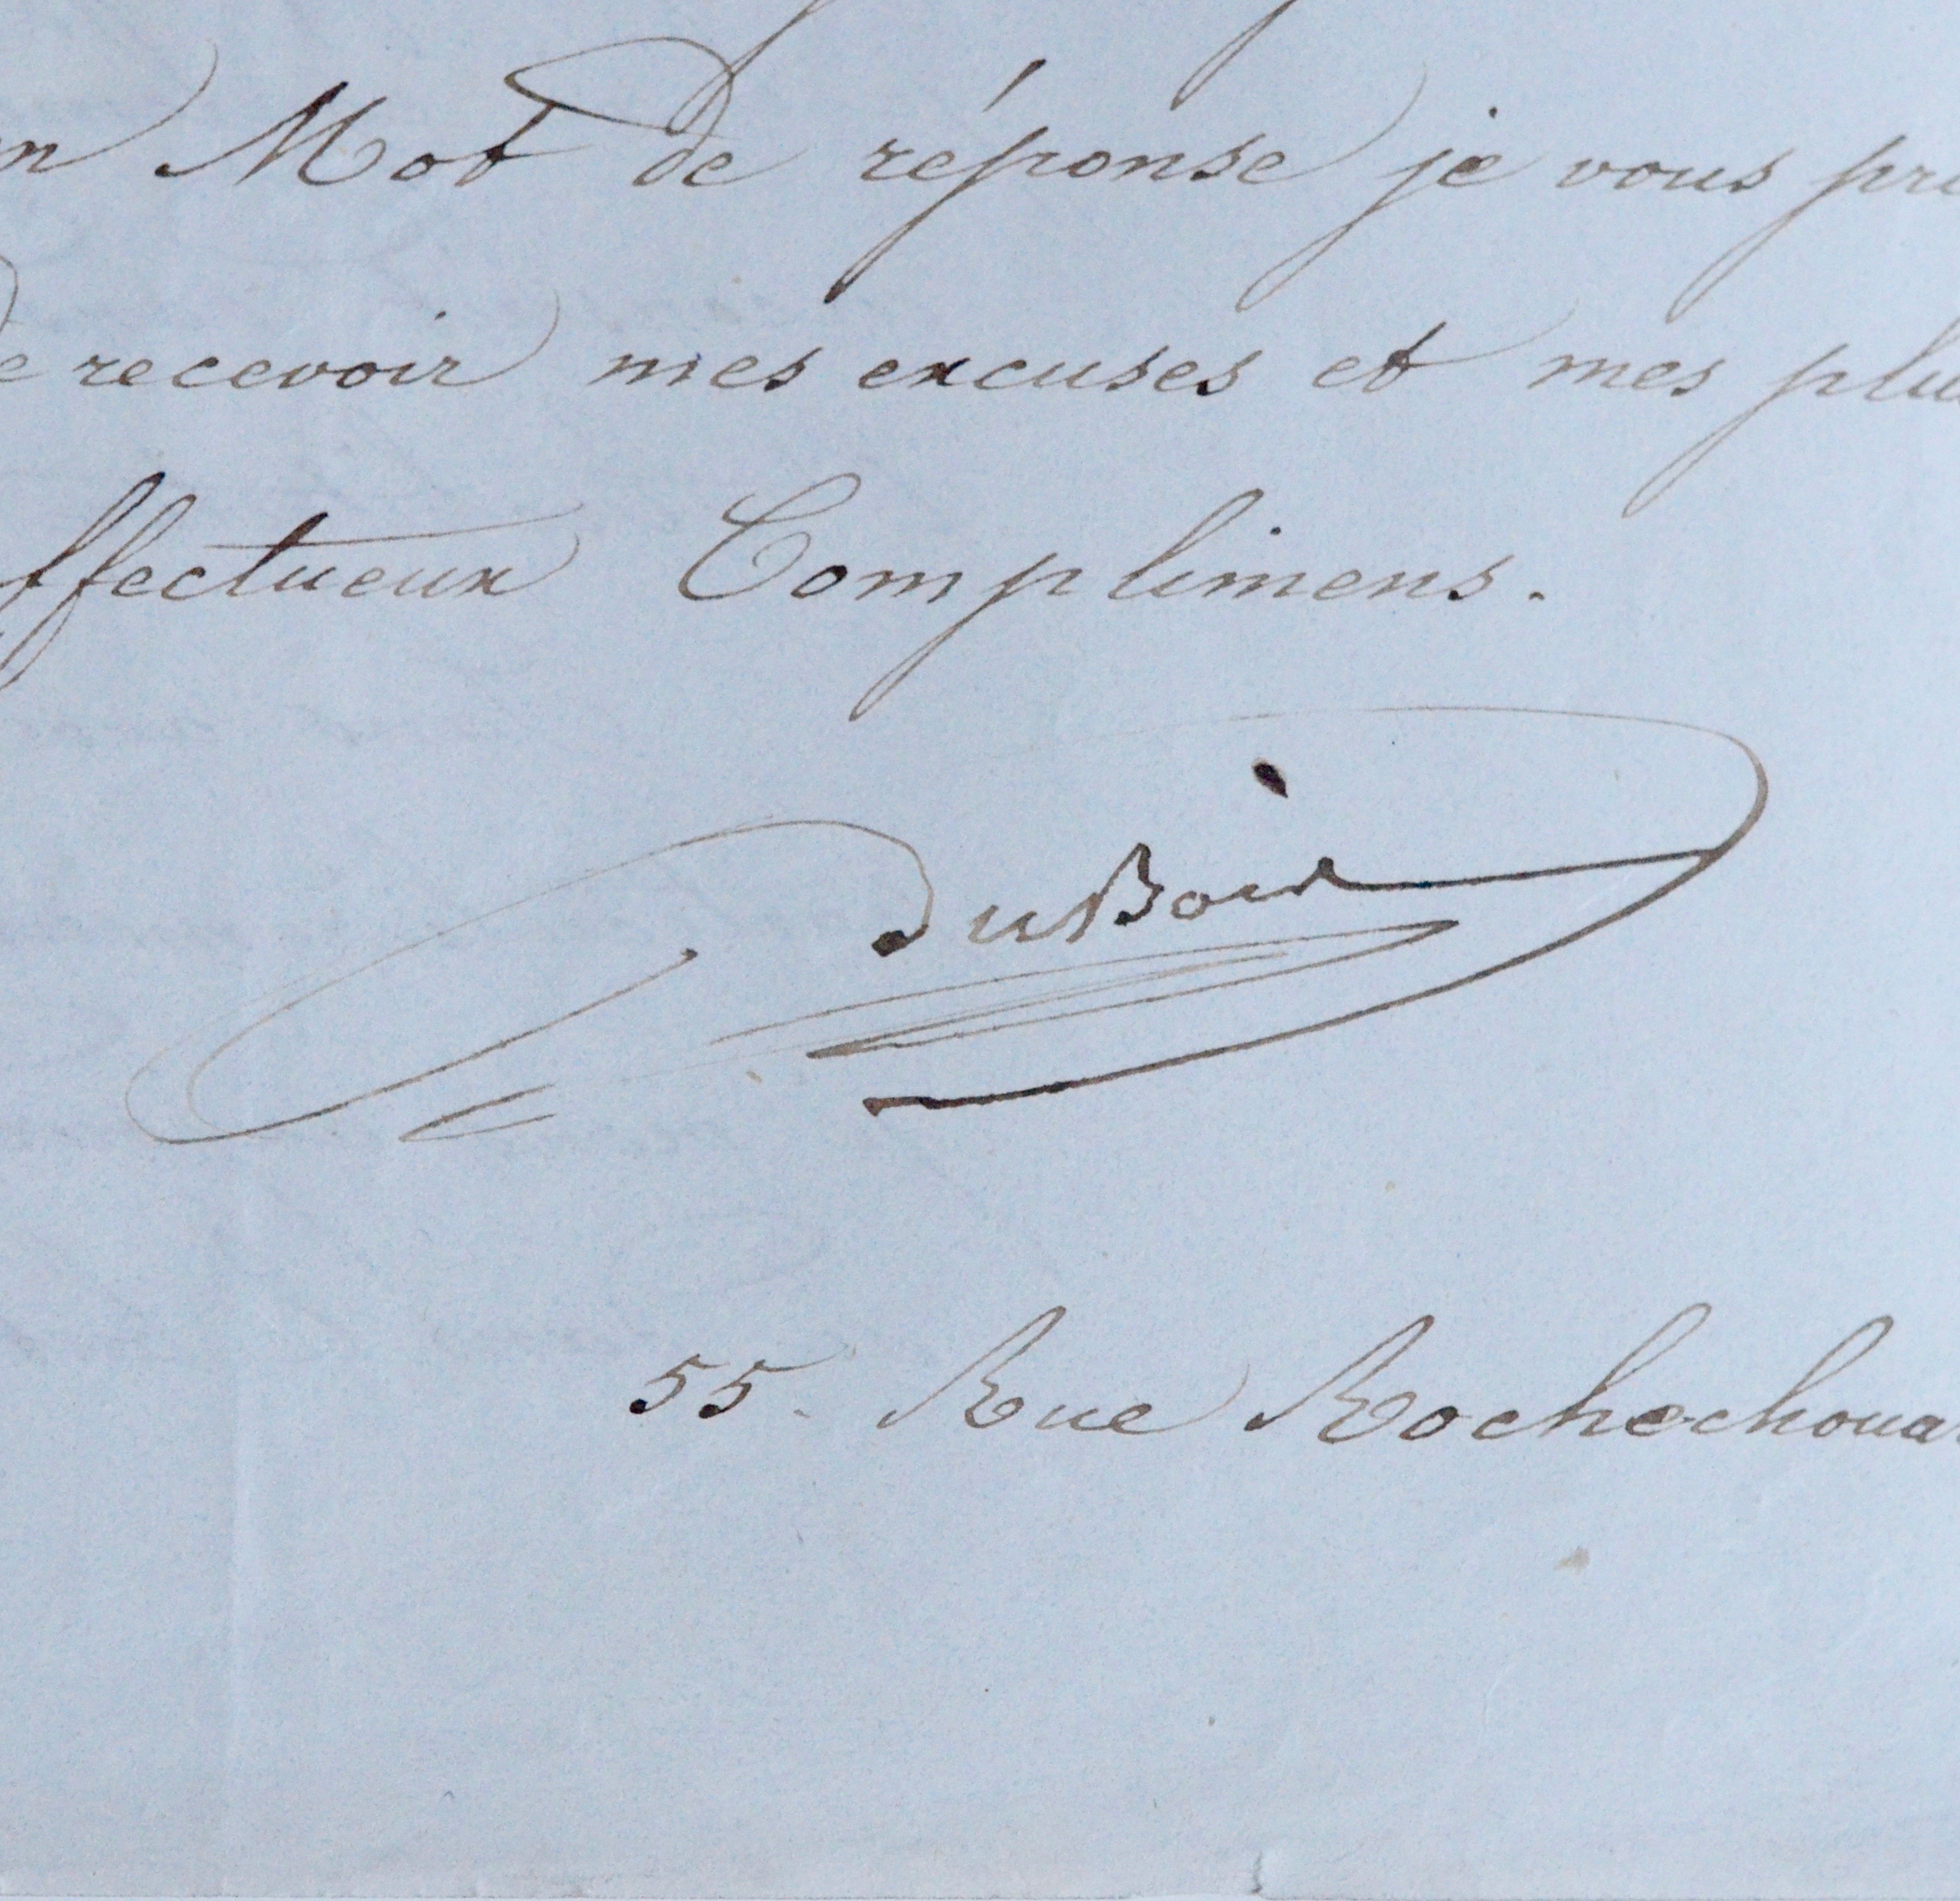 n Mot de réponse je vous pri
e recevoir mes excuses et mes plus
ffectueux Complimens.
duBois
55. Rue Rochechoua